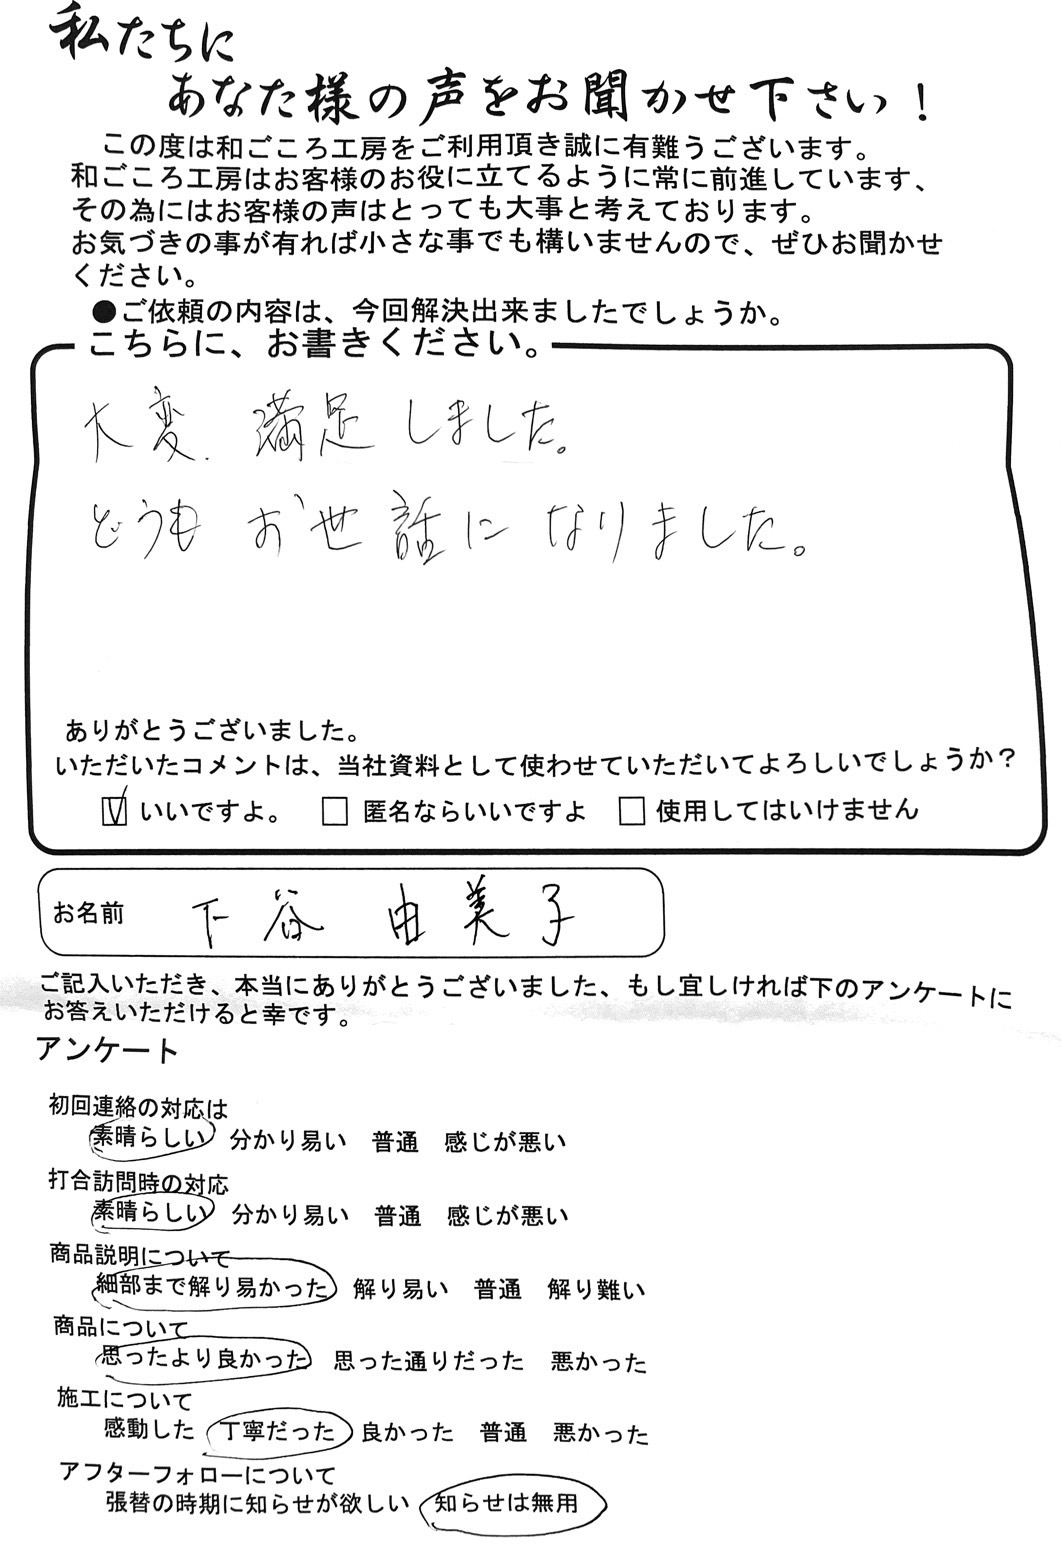 私たちに
あなた様の声をお聞かせ下さい！
この度は和ごころ工房をご利用頂き誠に有難うございます。
和ごころ工房はお客様のお役に立てるように常に前進しています、
その為にはお客様の声はとっても大事と考えております。
お気づきの事が有れば小さな事でも構いませんので、ぜひお聞かせ
ください。
●ご依頼の内容は、今回解決出来ましたでしょうか。
こちらに、お書きください。
大変、満足しました。
どうもお世話になりました。
ありがとうございました。
いただいたコメントは、当社資料として使わせていただいてよろしいでしょうか？
☑ いいですよ。 □ 匿名ならいいですよ □ 使用してはいけません
お名前 下谷 由美子
ご記入いただき、本当にありがとうございました、もし宜しければ下のアンケートに
お答えいただけると幸です。
アンケート
初回連絡の対応は
素晴らしい 分かり易い 普通 感じが悪い
打合訪問時の対応
素晴らしい 分かり易い 普通 感じが悪い
商品説明について
細部まで解り易かった 解り易い 普通 解り難い
商品について
思ったより良かった 思った通りだった 悪かった
施工について
感動した 丁寧だった 良かった 普通 悪かった
アフターフォローについて
張替の時期に知らせが欲しい 知らせは無用